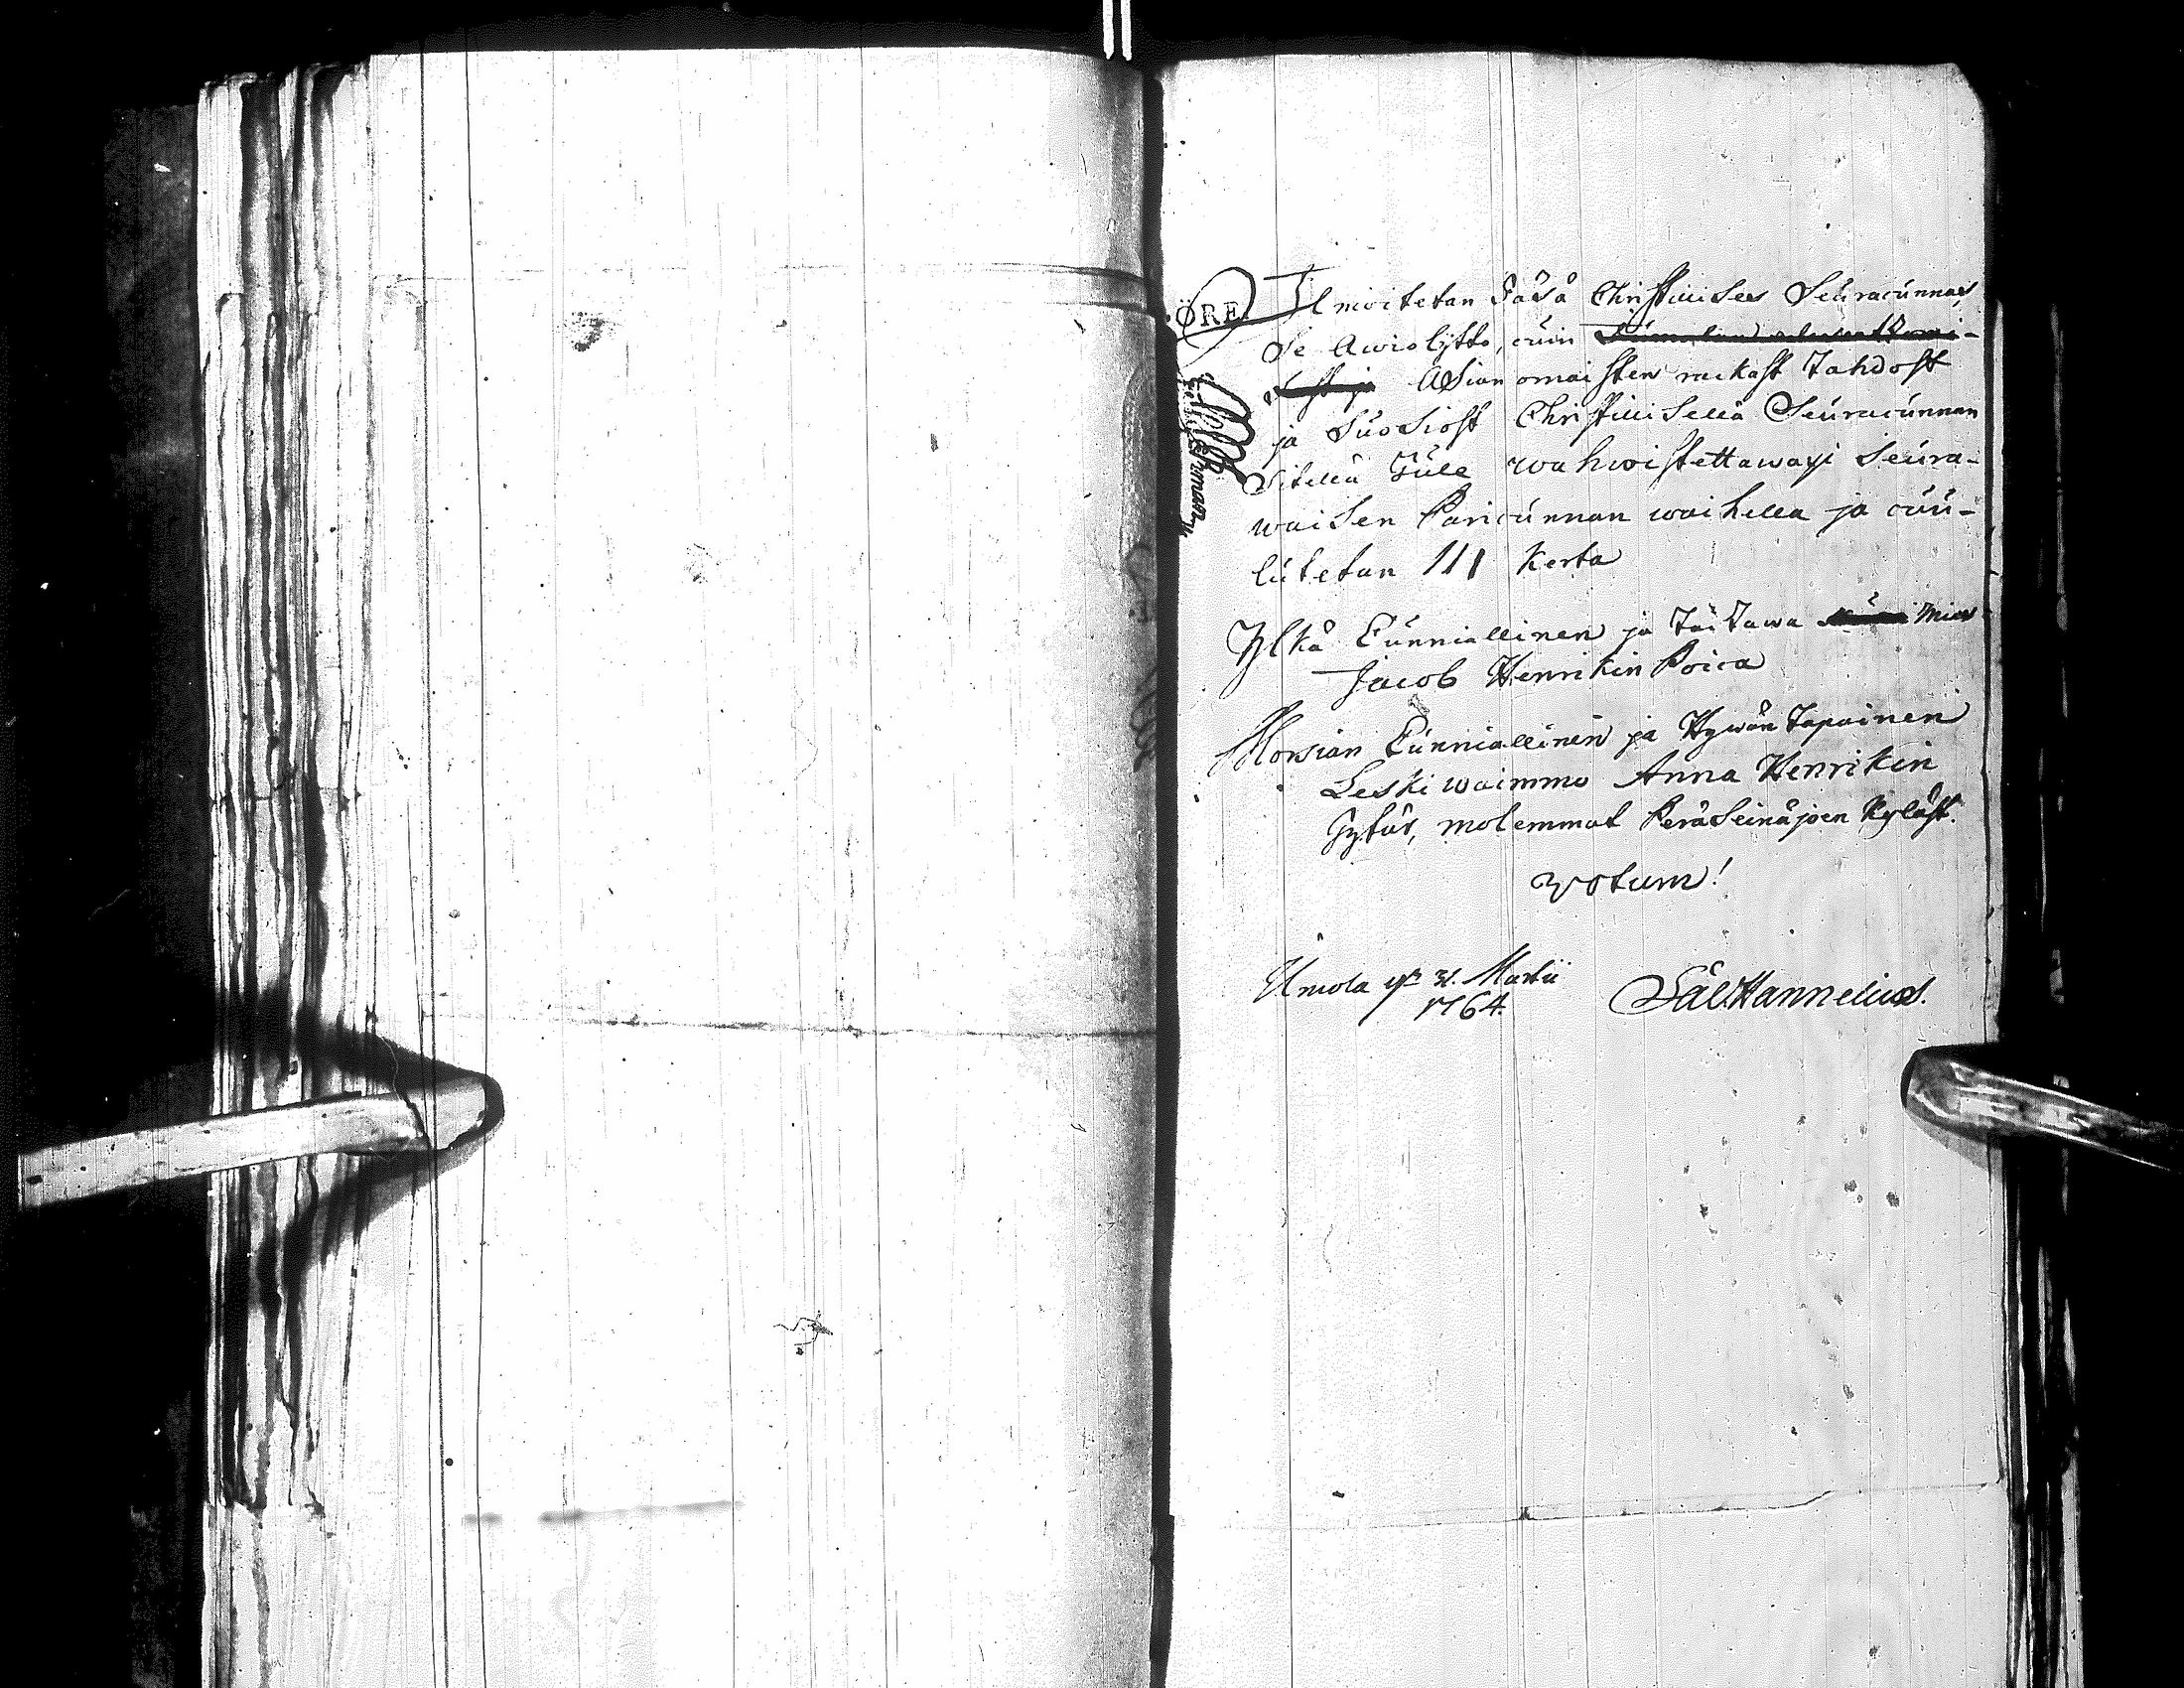 ÖRE.
Ilmoitetan Täsä Christillises Seuracunnas,
se Awioljtto, cuin
Asianomaisten rackast Tahdost
ja Suosiost Christillisellä Seuracunnan
Sitellä Tule wahwistettawaxi Seura-
waisen Paricunnan waihella ja cuu-
lutetan III Kerta
Yljkä Cunniallinen ja Täitawa Mies
Jacob Henrikin Poica
Morsian Cunniallinen ja Hywän Tapainen
Leski waimmo Anna Henrikin
Tytär, molemmat Peräseinäjoen Kyläst.
Votum!
Ilmola 31. Martii
1764.
Hannelius.